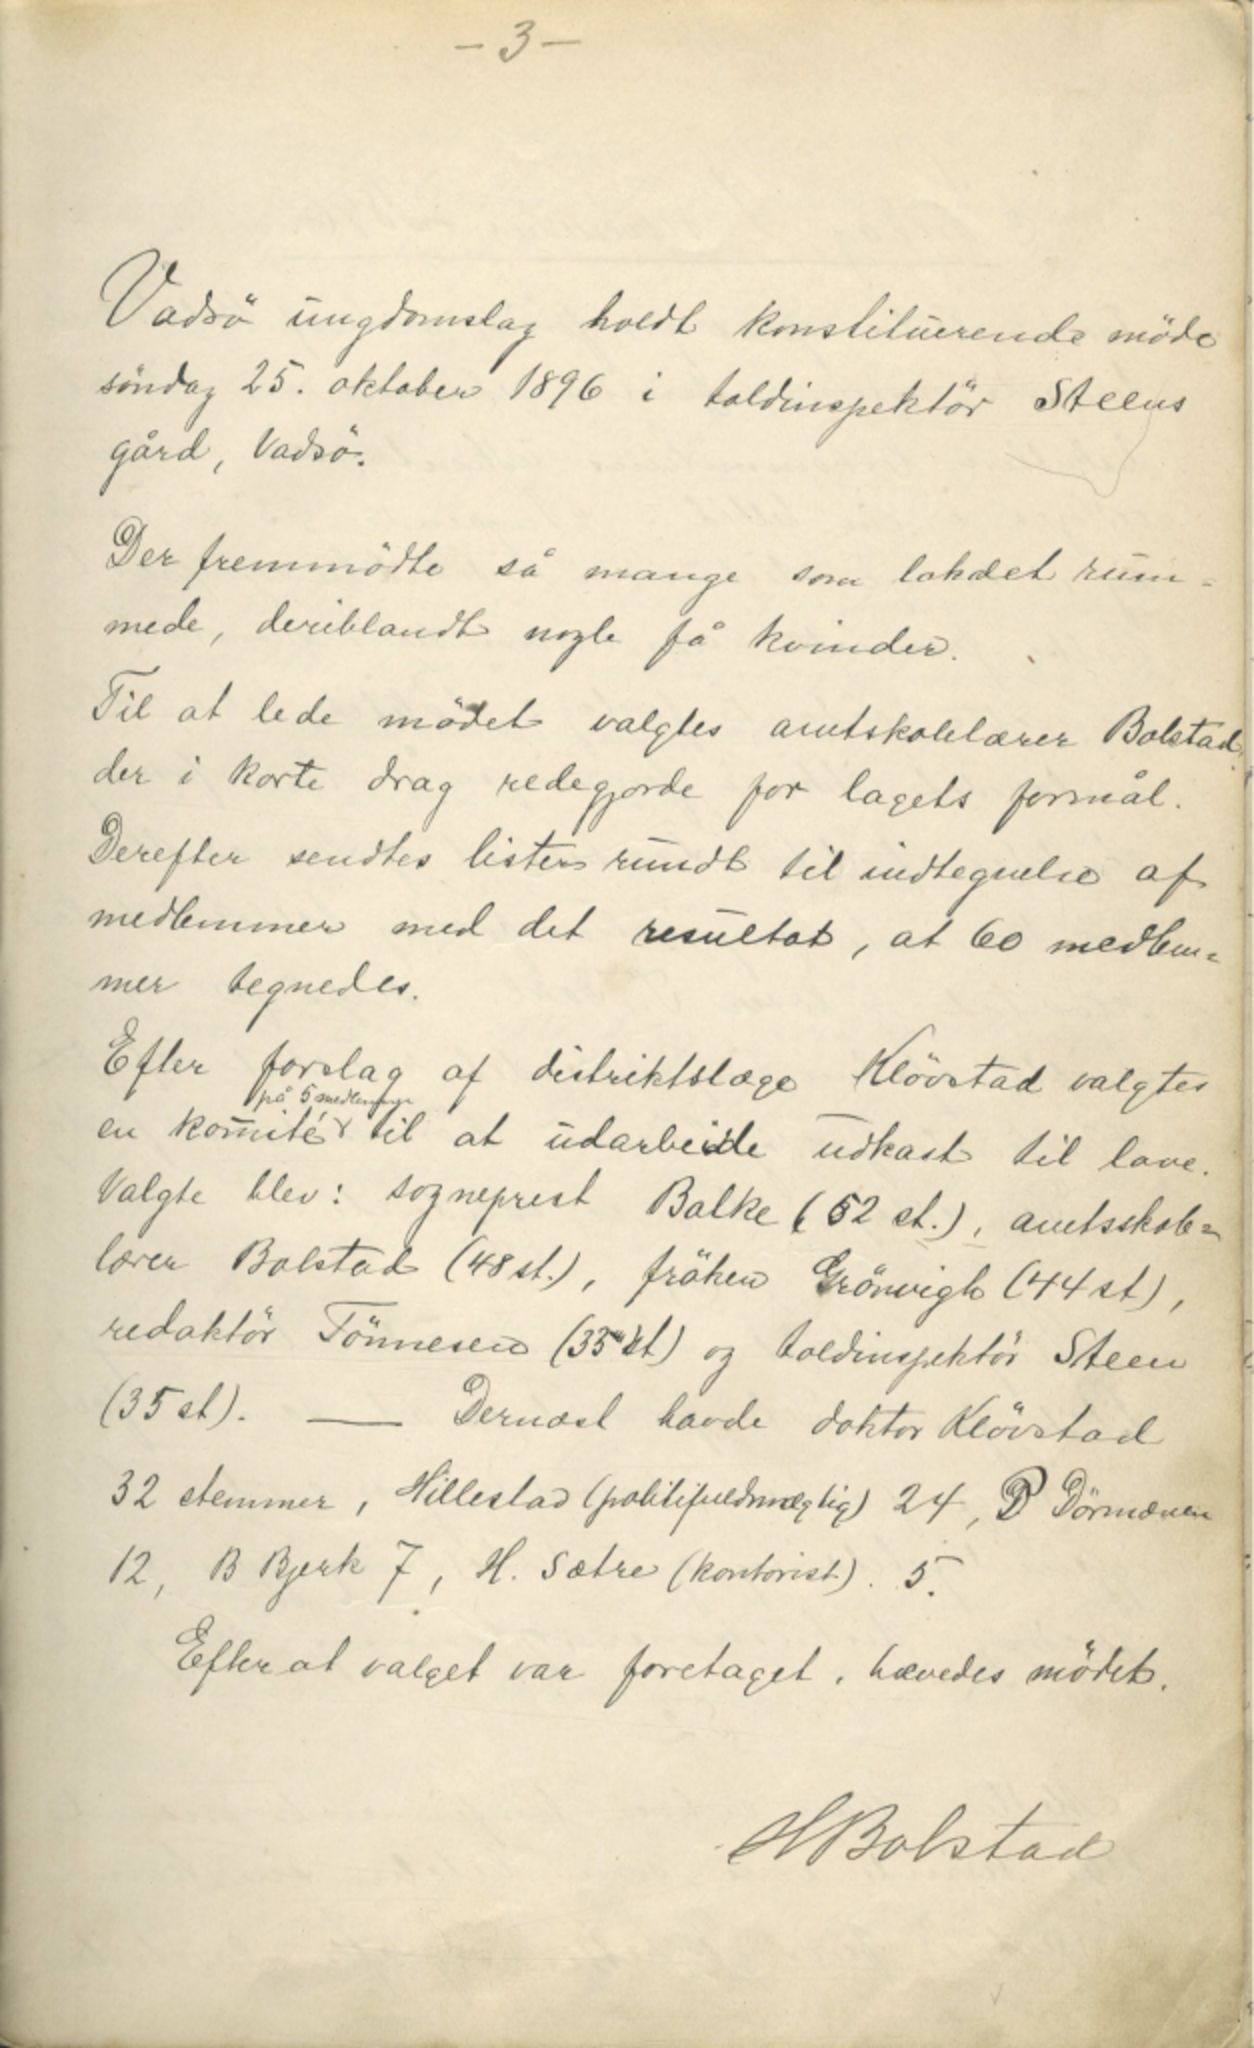 - 3 -
Vadsö ungdomslag holdt konstituerende möde
söndag 25. oktober 1896 i toldinspektör Steens
gård, Vadsö.
Der fremmödte så mange som lokalet rum=
mede, deriblandt nogle få kvinder.
Til at lede mödet valgtes amtskolelærer Bolstad,
der i korte drag redegjorde for lagets formål.
Derefter sendtes lister rundt til indtegnelse af
medlemmer med det resultat, at 60 medlem=
mer tegnedes.
Efter forslag af distriktslæge Klövstad valgtes
på 5 medlemmer
en komité til at udarbeide udkast til love.
Valgte blev: sogneprest Balke (52 st.), amtsskole=
lærer Bolstad (48 st.), fröken Grönvigh (44 st),
redaktör Tönnesen (35 st) og toldinspektör Steen
(35 st). — Dernæst havde doktor Klövstad
32 stemmer, Hillestad (politifuldmægtig) 24, P Dörmænen
12, B Bjerk 7, H. Sætre (kontorist). 5.
Efter at valget var foretaget, hævedes mödet.
H Bolstad